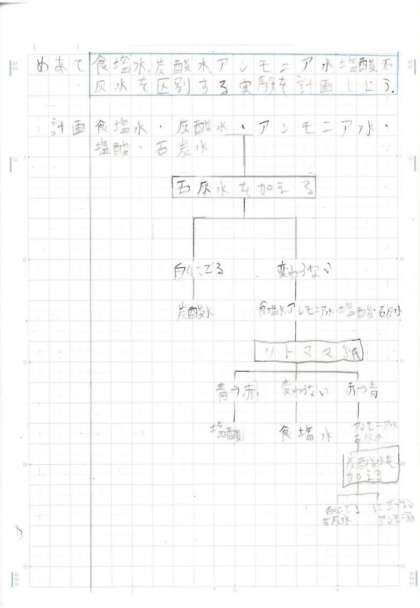 めあて 食塩水、炭酸水、アンモニア水、塩酸、石
灰水を区別する実験を計画しよう。
計画 食塩水・炭酸水・アンモニア水・
塩酸・石灰水
石灰水を加える
白くにごる 変わらない
炭酸水 食塩水、アンモニア水、塩酸、石灰水
リトマス紙
青→赤 変わらない 赤→青
塩酸 食塩水 アンモニア水
石灰水
炭酸水を
加える
白くにごる
石灰水